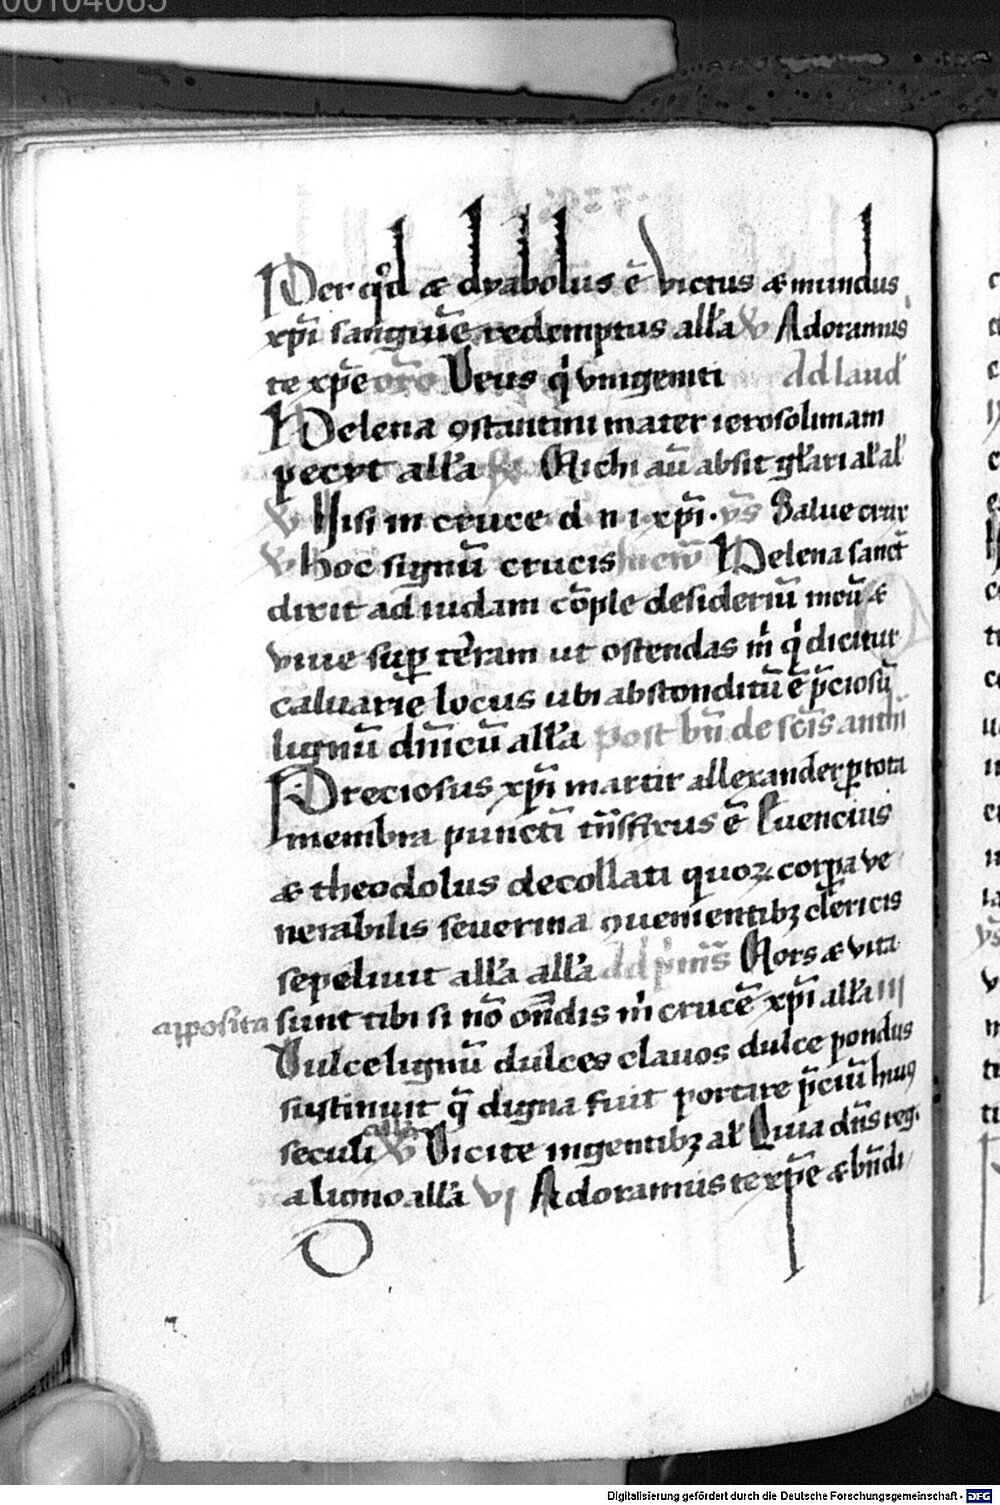 00104065
Per qd & dyabolus ē victus & mundus
xp̄i sanguīe redemptus all'a V Adoramus
te xp̄e or̄o Deus q' vnigeniti Ad laud'
Helena ꝯstantini mater ierosolimam
pecyt all'a R Michi aū absit gl'ari al'al'
V Nisi in cruce d n i xp̄i. ys Salue crux
V hoc signū crucis Helena sanct'
dixit ad iudam cōple desideriū meū &
viue suꝑ terram ut ostendas m' q' dicitur
caluarie locus ubi abscondītū ē p̄ciosū
lignū dn̄icū all'a post bn̄ de sc̄is anthi
Preciosus xp̄i martir allexander ꝑ tota
membra puncti tn̄sfixus ē Euencius
& theodolus decollati quoꝝ corꝑa ve
nerabilis seuerina ꝯuenientibꝫ clericis
sepeliuit all'a all'a Ad p̄mās Mors & vita
apposita sunt tibi si nō on̄dis m' crucē xp̄i all'a III
Dulce lignū dulces clauos dulce pondus
sustinuit q̄ digna fuit portare p̄ciū huiꝰ
seculi all'a V Dicite in gentibꝫ al' Quia dn̄s reg.
a ligno all'a VI Adoramus te xp̄e & bn̄di
Digitalisierung gefördert durch die Deutsche Forschungsgemeinschaft - DFG